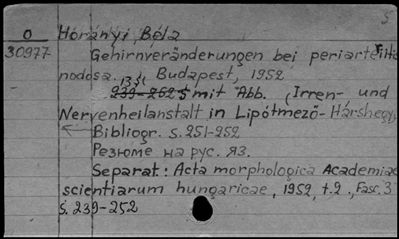 O Hórányi, Béla
30977 Gehirnveränderungen bei periarteriitis
nodosa. Budapest, 1952
13 S.
239-252 S mit Abb. (Irren- und
Nervenheilanstalt in Lipótmező-Hárshegy)
Bibliogr. S. 251-252
Резюме на рус. яз.
Separat: Acta morphologica Academiae
scientiarum hungaricae, 1952, t.2., Fasc. 3
S. 239-252